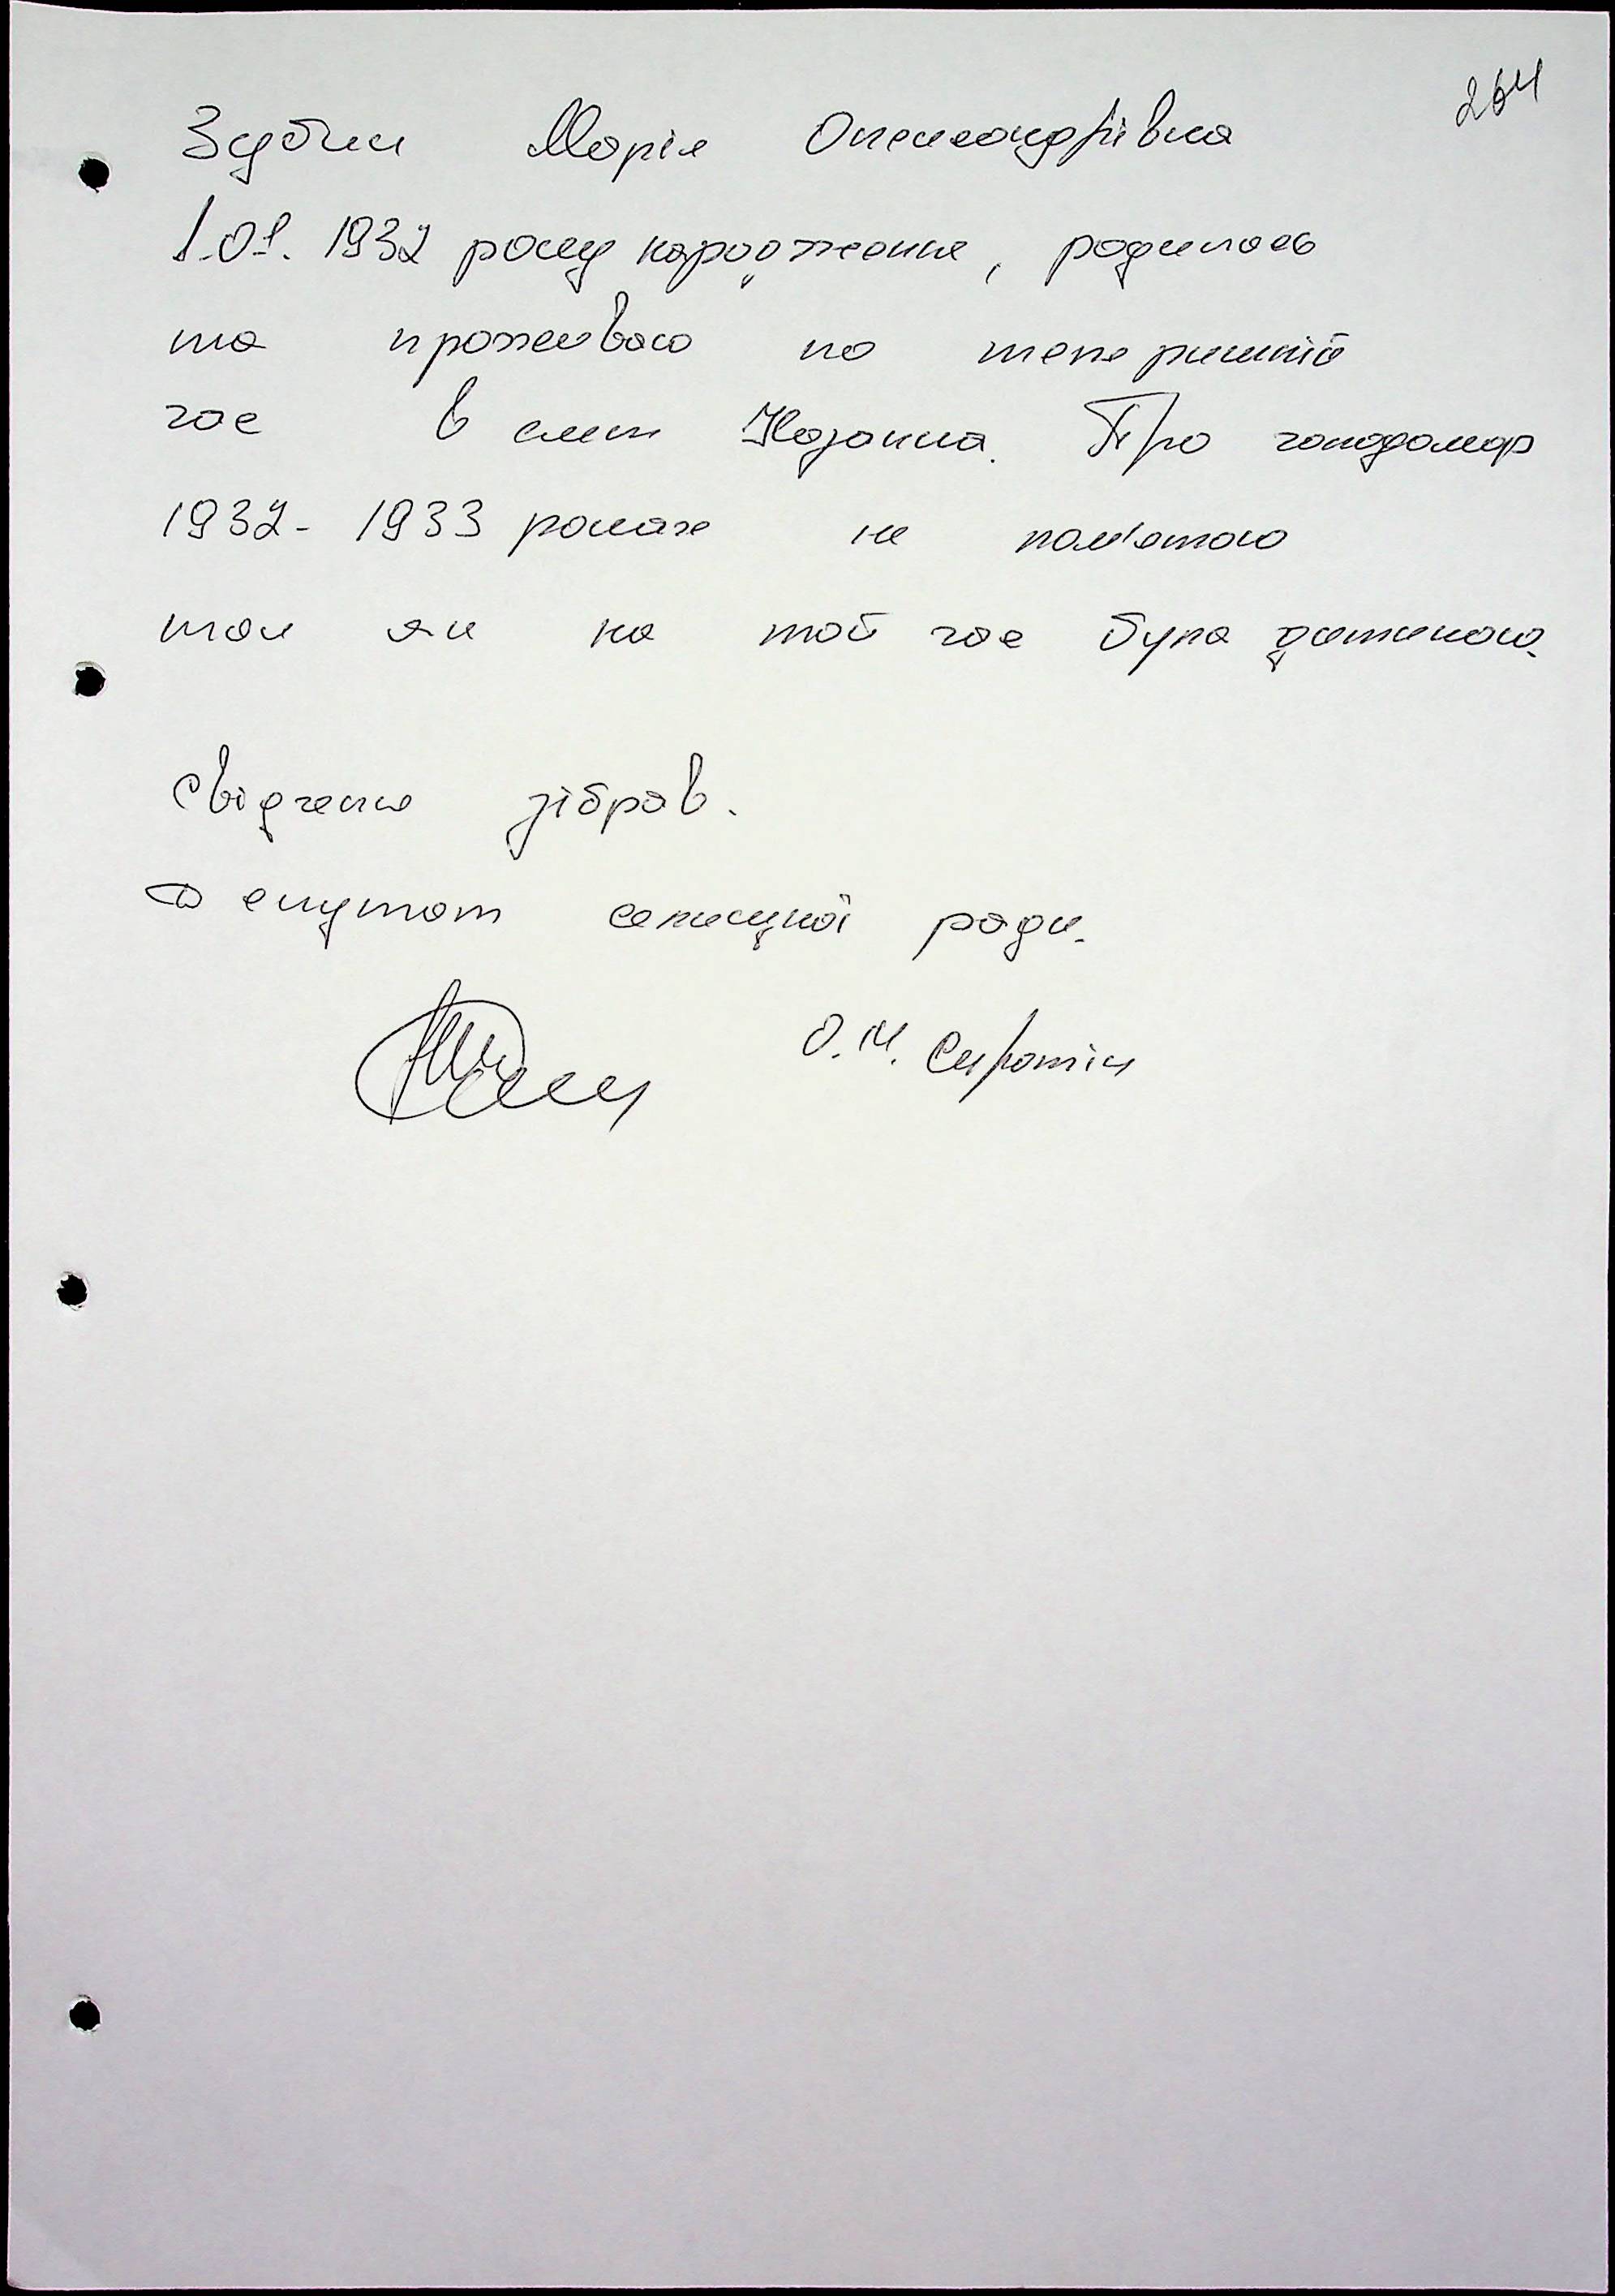 264
Зубки Марія Олександрівна
1.01. 1932 року народження, родилась
та проживаю по теперишній
час в смт Казанка. Про голодомор
1932-1933 роках не пам'ятаю
так як на той час була дитиною.
Свідчення зібрав.
Депутат селищної ради.
О.М. Сиротін